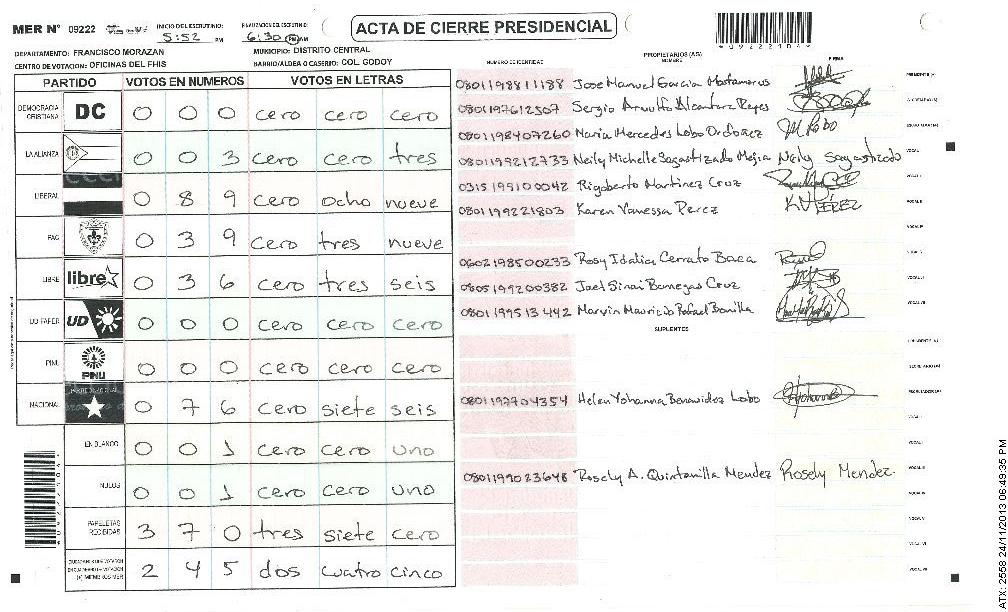 MER N° 09222
INICIO DEL ESCRUTINIO: 5:52 PM
FINALIZACION DEL ESCRUTINIO: 6:30 PM AM
ACTA DE CIERRE PRESIDENCIAL
*09222104*
DEPARTAMENTO: FRANCISCO MORAZAN
MUNICIPIO: DISTRITO CENTRAL
CENTRO DE VOTACION: OFICINAS DEL FHIS
BARRIO/ALDEA O CASERIO: COL. GODOY
PARTIDO VOTOS EN NUMEROS VOTOS EN LETRAS
DEMOCRACIA CRISTIANA DC 0 0 0 cero cero cero
LA ALIANZA 0 0 3 cero cero tres
LIBERAL 0 8 9 cero ocho nueve
PAC 0 3 9 cero tres nueve
LIBRE libre 0 3 6 cero tres seis
UD FAPER UD 0 0 0 cero cero cero
PINU PINU 0 0 0 cero cero cero
NACIONAL 0 7 6 cero siete seis
EN BLANCO 0 0 1 cero cero uno
NULOS 0 0 1 cero cero uno
PAPELETAS RECIBIDAS 3 7 0 tres siete cero
2 4 5 dos cuatro cinco
NUMERO DE IDENTIDAD PROPIETARIOS (AS) NOMBRE FIRMA
0801198811188 Jose Manuel Garcia
0801197612507 Sergio Arnulfo Alcantara Reyes
0801198407260 Maria Mercedes Lobo Ordoñez M Lobo
0801199212733 Neily Michelle Sagastizado Mejia Neily Sagastizado
0315199100042 Rigoberto Martinez Cruz
0801199221803 Karen Vanessa Perez K.V PÉREZ
0602198500233 Rosy Idalia Cerrato Baca
0805199200382 Jael Sinai Banegas Cruz
0801199513442 Marvin Mauricio Rafael Bonilla
SUPLENTES
0801197704354 Helen Yohanna Benavidez Lobo
0801199023648 Rosely A. Quintanilla Mendez Rosely Mendez
ATX: 2558 24/11/2013 06:49:35 PM